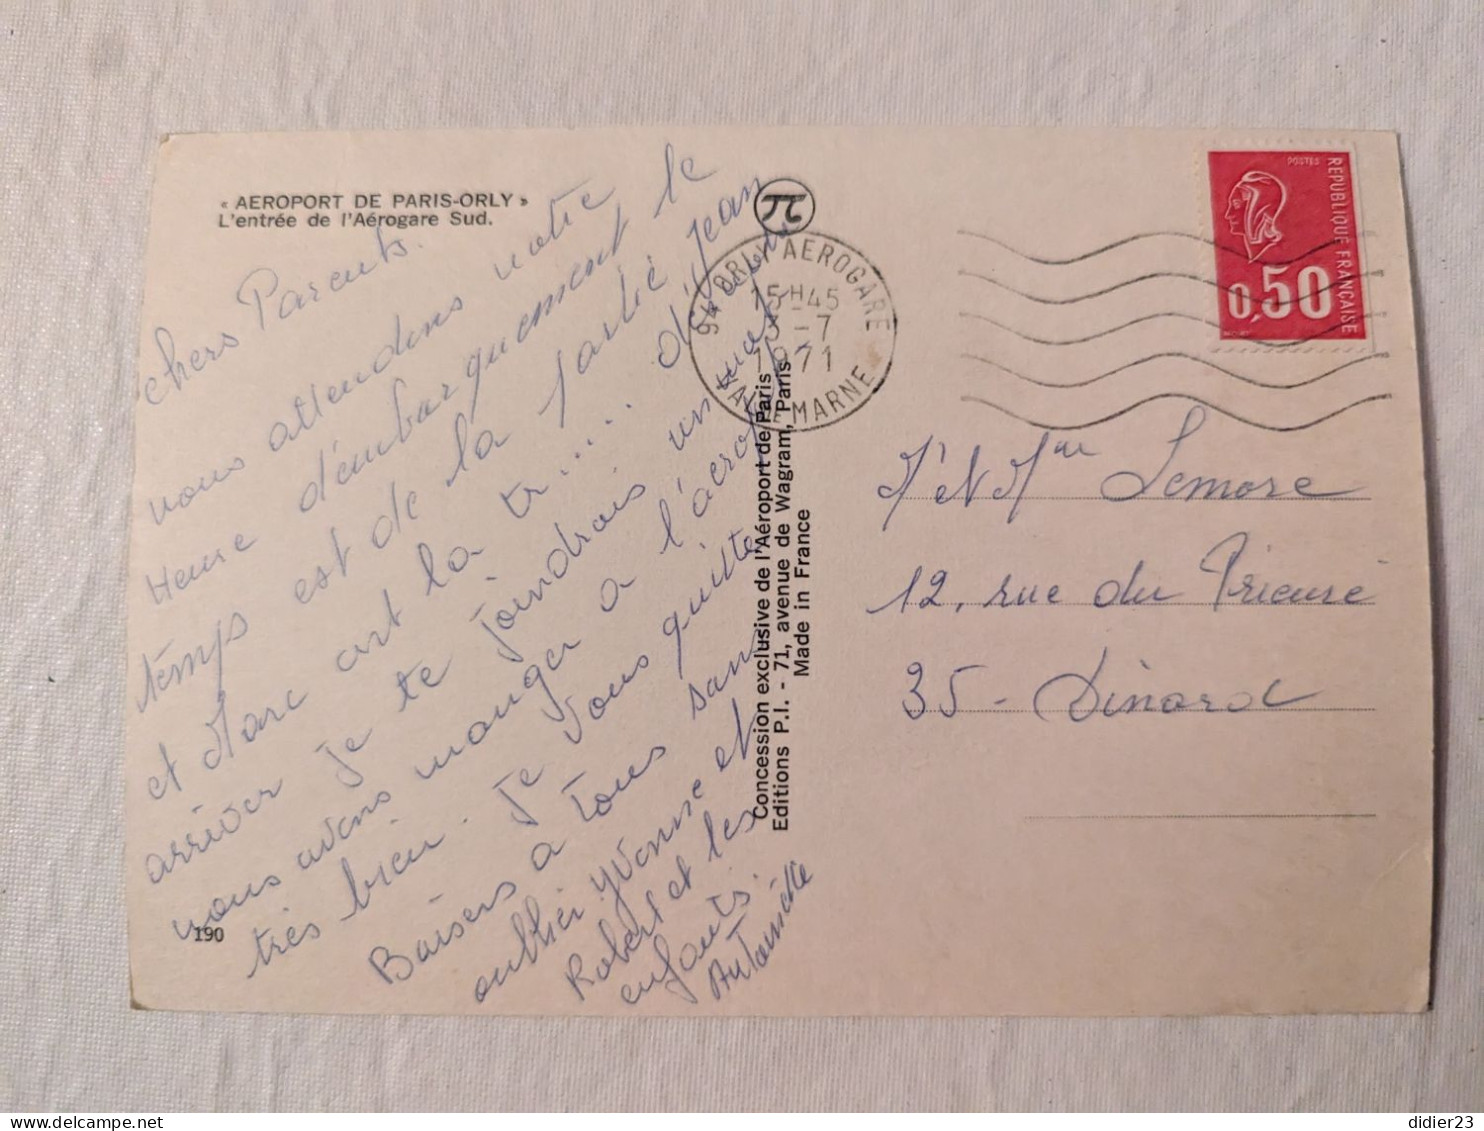 « AEROPORT DE PARIS-ORLY »
L'entrée de l'Aérogare Sud.
chers Parents.
nous attendons notre
Heure d'embarquement le
temps est de la partie Jean
et Marc ont la tr....
arriver je te joindrais un
nous avons manger a l'aeroport
très bien. Je vous quitte
Baisers a tous sans
oublier Yvonne et
Robert et les
enfants.
Antoinette
190
π
Concession exclusive de l'Aéroport de Paris
Editions P.I. - 71, avenue de Wagram, Paris
Made in France
94 ORLY AEROGARE
15H45
-7
1971
VAL DE MARNE
POSTES
REPUBLIQUE FRANÇAISE
0,50
M et Mme Lemore
12, rue du Prieuré
35 - Dinard
didier23